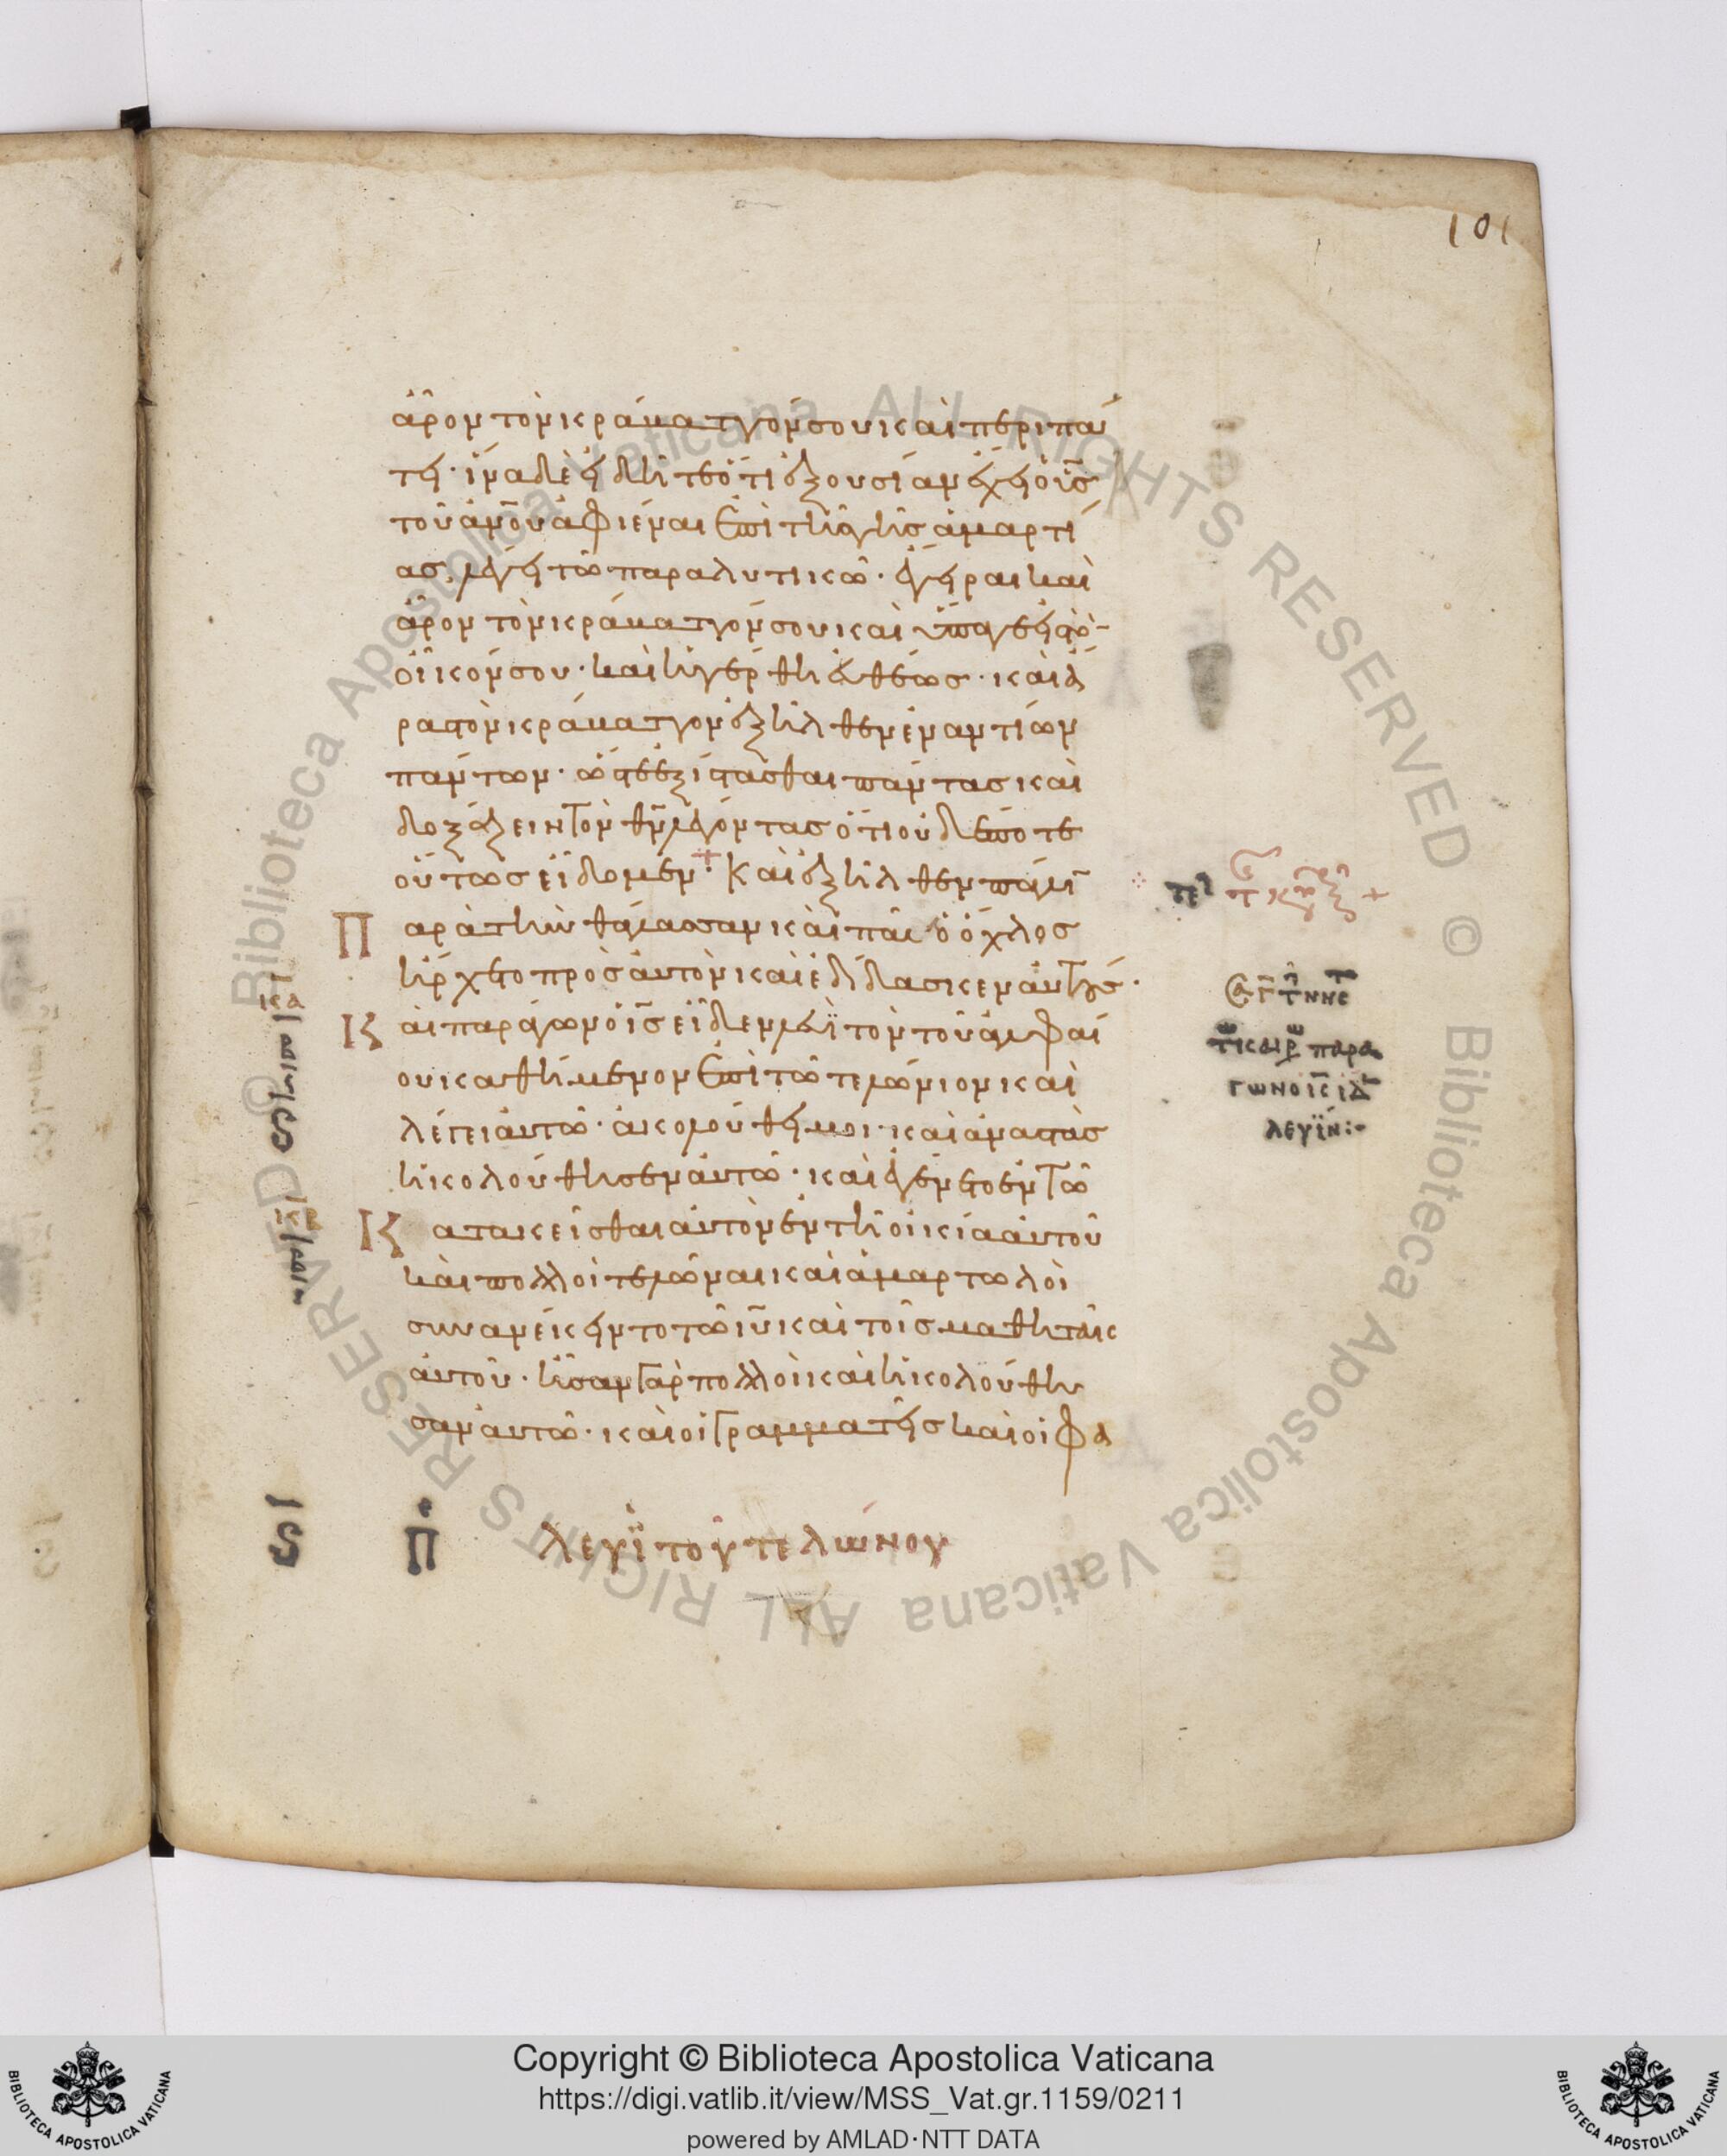 101
ἆρον τὸν κράβαττόν σου καὶ περιπά
τει· ἵνα δὲ εἰδῆτε ὅτι ἐξουσίαν ἔχει ὁ υ̅ς̅
τοῦ α̅ν̅ο̅υ̅ ἀφιέναι ἐπὶ τῆς γῆς ἁμαρτί
ας λέγει τῶ παραλυτικῶ· ἔγειραι καὶ
ἆρον τὸν κράβαττόν σου καὶ ὕπαγε εἰς τὸν
οἶκόν σου· καὶ ἠγέρθη εὐθέως· καὶ ἄ
ρας τὸν κράβαττον ἐξῆλθεν ἐναντίον
πάντων· ὥστε ἐξίστασθαι πάντας καὶ
δοξάζειν τὸν θ̅ν̅ λέγοντας ὅτι οὐδέποτε
οὕτως εἴδομεν· Καὶ ἐξῆλθεν πάλιν
Παρὰ τὴν θάλασσαν καὶ πᾶς ὁ ὄχλος
ἤρχετο πρὸς αὐτὸν καὶ ἐδίδασκεν αὐτούς·
Καὶ παράγων ὁ ι̅ς̅ εἶδεν λευῒ τὸν τοῦ ἀλφαί
ου καθήμενον ἐπὶ τὸ τελώνιον καὶ
λέγει αὐτῶ· ἀκολούθει μοι· καὶ ἀναστὰς
ἠκολούθησεν αὐτῶ· καὶ ἐγένετο ἐν τῶ
Κατακεῖσθαι αὐτὸν ἐν τῆ οἰκία αὐτοῦ
καὶ πολλοὶ τελῶναι καὶ ἁμαρτωλοὶ
συνανέκειντο τῶ ι̅υ̅ καὶ τοῖς μαθηταῖς
αὐτοῦ· ἦσαν γὰρ πολλοὶ καὶ ἠκολούθη
σαν αὐτῶ· καὶ οἱ γραμματεῖς καὶ οἱ φα
λεγῒ τοῦ τελώνου
παρά
γων ὁ ι̅ς̅ ιδ
λεγῒν:-
Copyright © Biblioteca Apostolica Vaticana
https://digi.vatlib.it/view/MSS_Vat.gr.1159/0211
powered by AMLAD·NTT DATA
BIBLIOTECA APOSTOLICA VATICANA
BIBLIOTECA APOSTOLICA VATICANA
© Biblioteca Apostolica Vaticana ALL RIGHTS RESERVED © Biblioteca Apostolica Vaticana ALL RIGHTS RESERVED